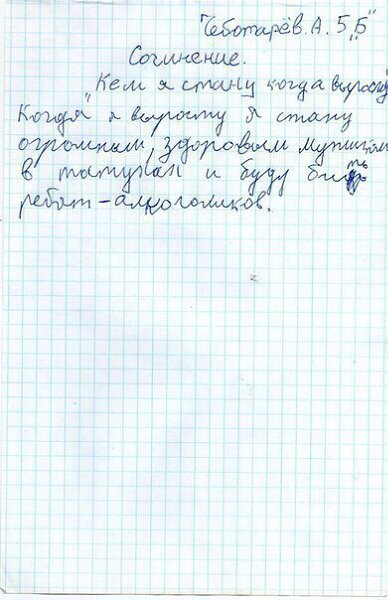 Чеботарёв. А. 5 "Б"
Сочинение.
"Кем я стану когда вырасту"
Когда я вырасту я стану
огромным, здоровым мужиком
в татухах и буду бить
ребят-алкоголиков.